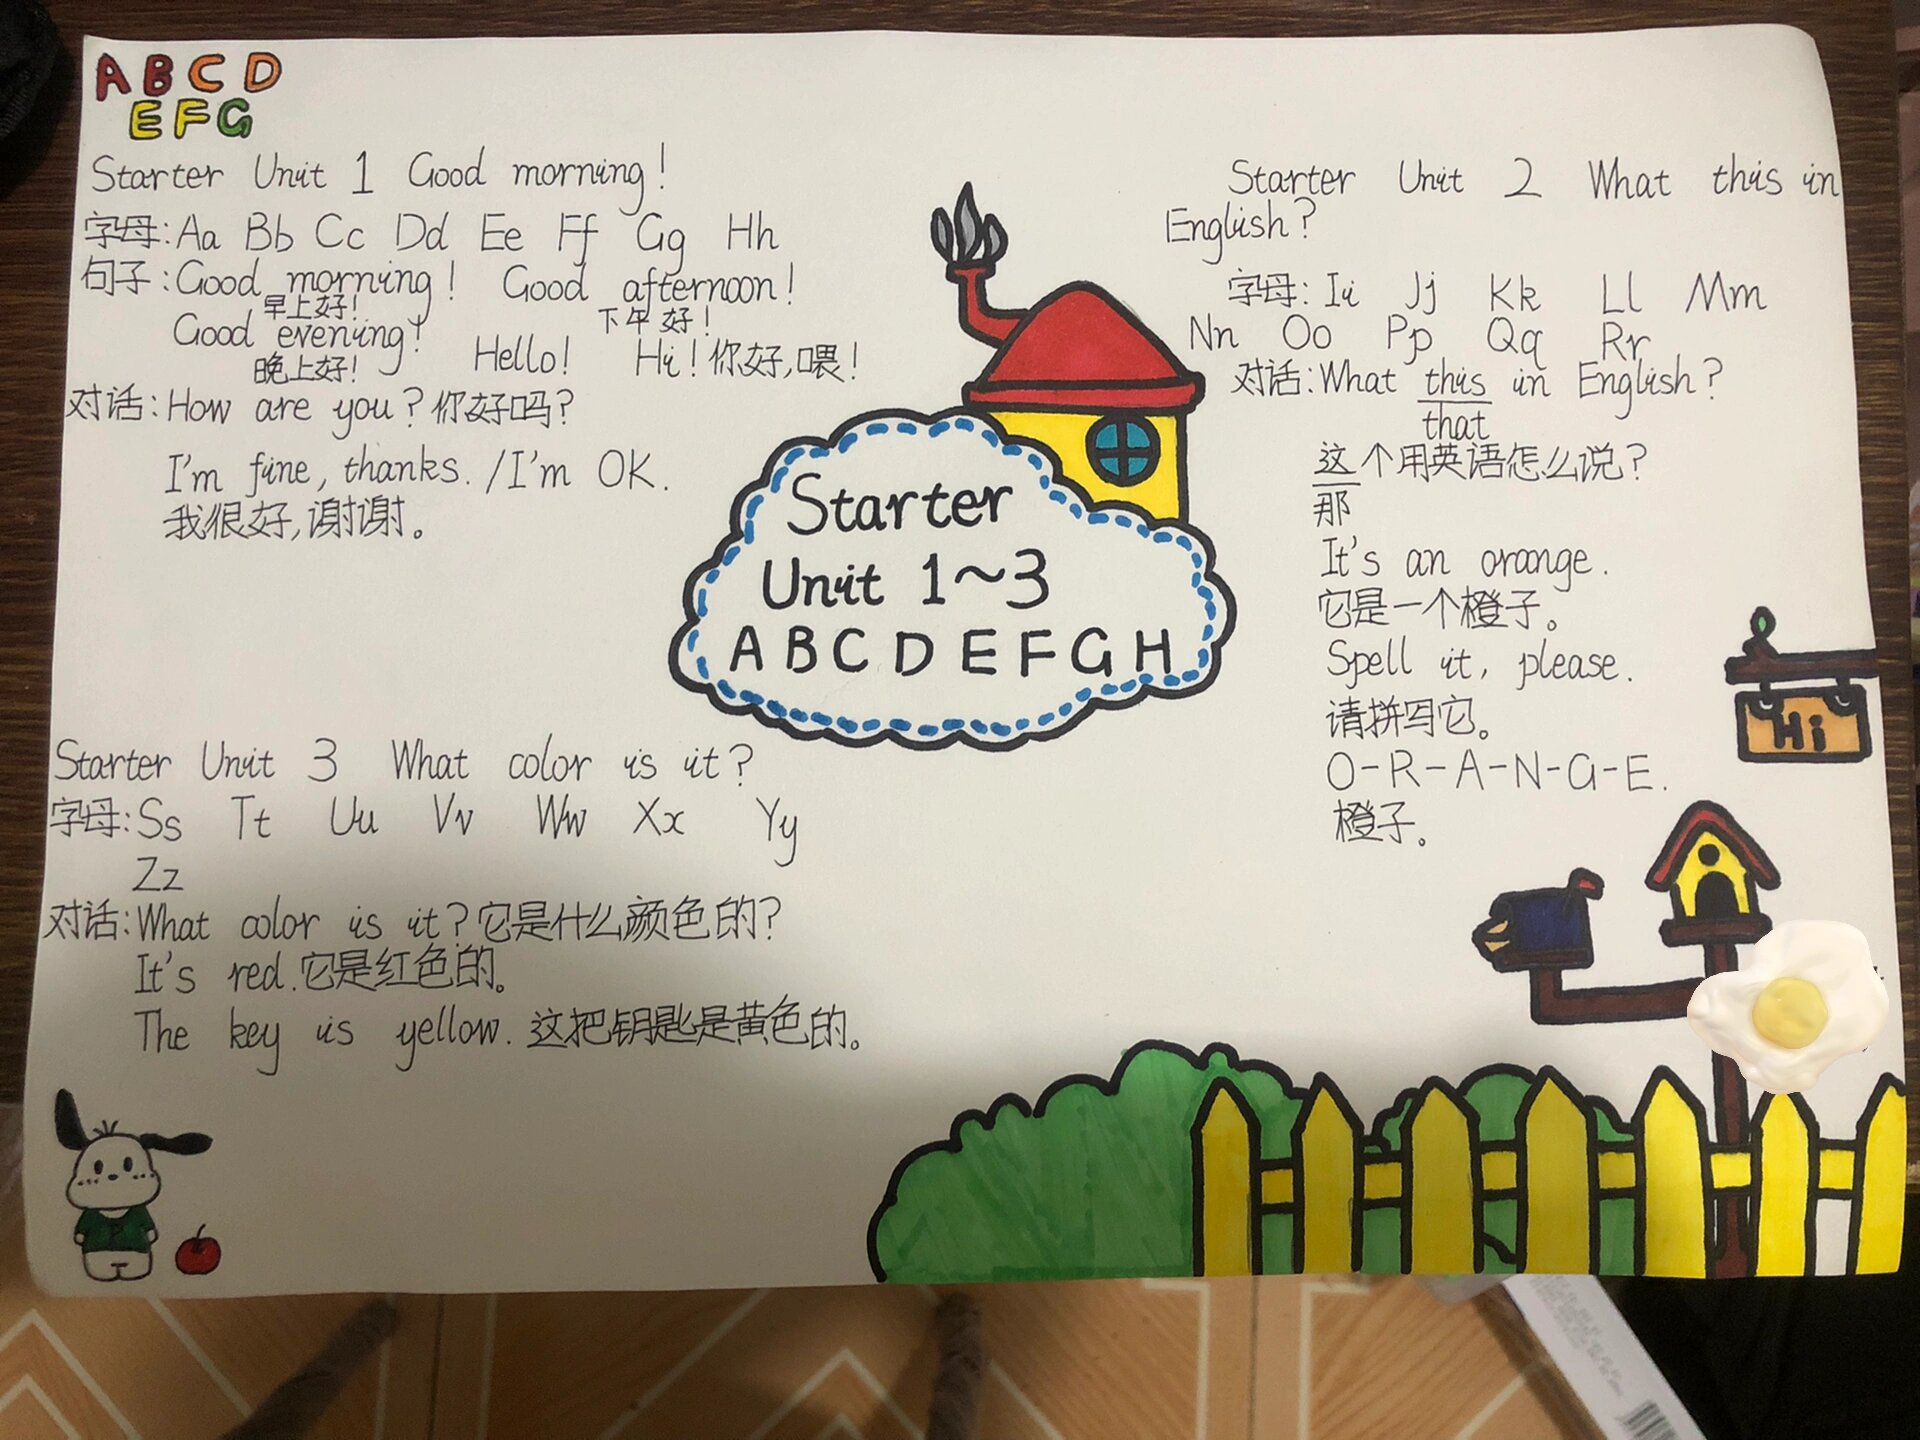 ABCD
EFG
Starter Unit 1 Good morning!
字母:Aa Bb Cc Dd Ee Ff Gg Hh
句子:Good morning! Good afternoon!
早上好! 下午好!
Good evening! Hello! Hi!你好,喂!
晚上好!
对话:How are you?你好吗?
I'm fine, thanks./I'm OK.
我很好,谢谢。
Starter
Unit 1~3
ABCDEFGH
Starter Unit 2 What this in
English?
字母:Ii Jj Kk Ll Mm
Nn Oo Pp Qq Rr
对话:What this in English?
that
这个用英语怎么说?
那
It's an orange.
它是一个橙子。
Spell it, please.
请拼写它。
O-R-A-N-G-E.
橙子。
Hi
Starter Unit 3 What color is it?
字母:Ss Tt Uu Vv Ww Xx Yy
Zz
对话:What color is it?它是什么颜色的?
It's red.它是红色的。
The key is yellow.这把钥匙是黄色的。